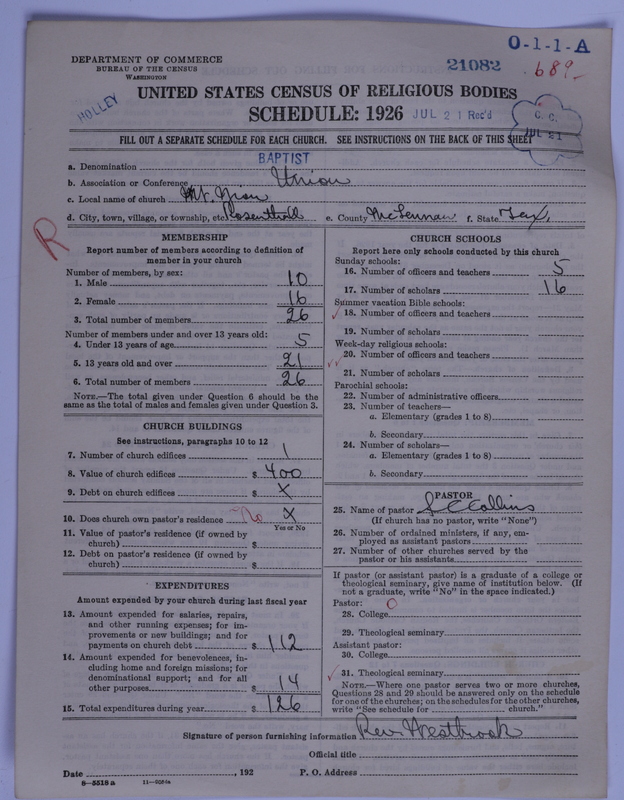 O-1-1-A
DEPARTMENT OF COMMERCE
BUREAU OF THE CENSUS
WASHINGTON
21082
689
HOLLEY
UNITED STATES CENSUS OF RELIGIOUS BODIES
SCHEDULE: 1926
JUL 21 Rec'd
C. C.
JUL 21
FILL OUT A SEPARATE SCHEDULE FOR EACH CHURCH. SEE INSTRUCTIONS ON THE BACK OF THIS SHEET
a. Denomination BAPTIST
b. Association or Conference Union
c. Local name of church Mt. Zion
d. City, town, village, or township, etc. Rosenthall e. County McLennan f. State Tex.
R
MEMBERSHIP
Report number of members according to definition of
member in your church
Number of members, by sex:
1. Male 10
2. Female 16
3. Total number of members 26
Number of members under and over 13 years old:
4. Under 13 years of age 5
5. 13 years old and over 21
6. Total number of members 26
NOTE.—The total given under Question 6 should be the
same as the total of males and females given under Question 3.
CHURCH BUILDINGS
See instructions, paragraphs 10 to 12
7. Number of church edifices 1
8. Value of church edifices $ 400
9. Debt on church edifices $ X
10. Does church own pastor's residence No X
Yes or No
11. Value of pastor's residence (if owned by
church) $
12. Debt on pastor's residence (if owned by
church) $
EXPENDITURES
Amount expended by your church during last fiscal year
13. Amount expended for salaries, repairs,
and other running expenses; for im-
provements or new buildings; and for
payments on church debt $ 112
14. Amount expended for benevolences, in-
cluding home and foreign missions; for
denominational support; and for all
other purposes $ 14
15. Total expenditures during year $ 126
CHURCH SCHOOLS
Report here only schools conducted by this church
Sunday schools:
16. Number of officers and teachers 5
17. Number of scholars 16
Summer vacation Bible schools:
18. Number of officers and teachers
19. Number of scholars
Week-day religious schools:
20. Number of officers and teachers
21. Number of scholars
Parochial schools:
22. Number of administrative officers
23. Number of teachers—
a. Elementary (grades 1 to 8)
b. Secondary
24. Number of scholars—
a. Elementary (grades 1 to 8)
b. Secondary
PASTOR
25. Name of pastor S C Collins
(If church has no pastor, write "None")
26. Number of ordained ministers, if any, em-
ployed as assistant pastors
27. Number of other churches served by the
pastor or his assistants
If pastor (or assistant pastor) is a graduate of a college or
theological seminary, give name of institution below. (If
not a graduate, write "No" in the space indicated.)
Pastor: O
28. College
29. Theological seminary
Assistant pastor:
30. College
31. Theological seminary
NOTE.—Where one pastor serves two or more churches,
Questions 28 and 29 should be answered only on the schedule
for one of the churches; on the schedules for the other churches,
write "See schedule for church."
Signature of person furnishing information Rev. Westbrook
Official title
Date , 192 P. O. Address
8—5518a